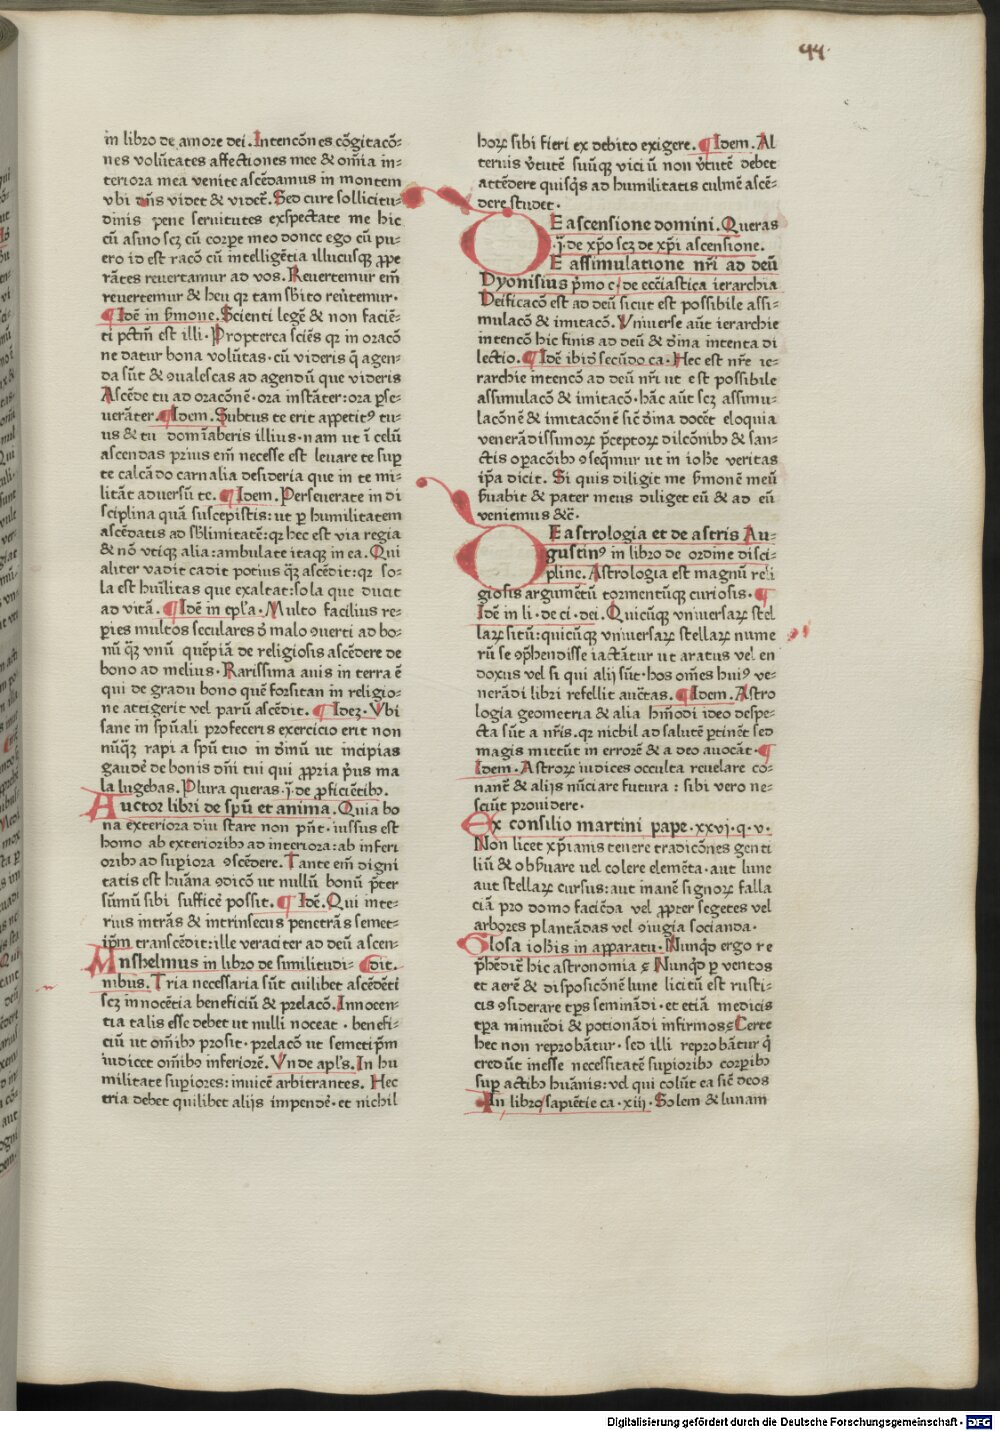 44
in libro de amore dei. Intencōnes cōgitacō-
nes volūtates affectiones mee & om̄ia in-
teriora mea venite ascēdamus in montem
vbi dn̄s videt & videt᷑. Sed cure sollicitu-
dinis pene seruitutes exspectate me hic
cū asino scꝫ cū corꝑe meo donec ego cū pu-
ero id est racōē cū intelligētia illucusqꝫ ꝓpe
rātes reuertamur ad vos. Reuertemur em̄
reuertemur & heu qꝛ tam sb̄ito reu̓temur.
¶ Idē in ẜmone. Scienti legē & non faciē-
ti pctm̄ est illi. Propterea sciēs qꝛ in oracō
ne datur bona volūtas. cū videris q̄ agen-
da sūt & ꝯualescas ad agendū que videris
Ascēde tu ad oracōnē. ora instāter: ora ꝑse-
ueranter. ¶ Idem. Subtus te erit appetitꝰ tu-
us & tu domīaberis illius. nam ut ī celū
ascendas prius em̄ necesse est leuare te suꝑ
te calcādo carnalia desideria que in te mi-
litāt aduersū te. ¶ Idem. Perseuerate in di
sciplina quā suscepistis: ut ꝑ humilitatem
ascēdatis ad sb̄limitatē: qꝛ hec est via regia
& nō vtiqꝫ alia: ambulate itaqꝫ in ea. Qui
aliter vadit cadit potius q̄ꝫ ascēdit: qꝛ so-
la est hūilitas que exaltat: sola que ducit
ad vitā. ¶ Idē in ep̄la. Multo facilius re-
ꝑies multos seculares d̓ malo ꝯuerti ad bo-
nū q̄ꝫ vnū quēpiā de religiosis ascēdere de
bono ad melius. Rarissima auis in terra ē
qui de gradu bono quē forsitan in religio-
ne attigerit vel parū ascēdit. ¶ Ideꝫ. Vbi
sane in spūali profeceris exercicio erit non
nūqꝫ rapi a spū tuo in dn̄m ut incipias
gaudē de bonis dn̄i tui qui ꝓpria pͥus ma
la lugebas. Plura queras. j. de ꝓficiētibꝫ.
Auctor libri de spū et anima. Quia bo
na exteriora diu stare non pn̄t. iussus est
homo ab exterioribꝫ ad interiora: ab inferi
oribꝫ ad suꝑiora ꝯscēdere. Tante em̄ digni
tatis est hūana ꝯdicō ut nullū bonū p̄ter
sūmū sibi sufficē possit. ¶ Idē. Qui inte-
rius intrās & intrinsecus penetrās semet-
ip̄m transcēdit: ille veraciter ad deū ascen-
Anshelmus in libro de similitudi- ¶ dit.
nibus. Tria necessaria sūt cuilibet ascēdēti
scꝫ innocētia beneficiū & prelacō. Innocen-
tia talis esse debet ut nulli noceat. benefi-
ciū ut om̄ibꝫ prosit. prelacō ut semetip̄m
iudicet om̄ibꝫ inferiorē. Vnde apl̄s. In hu
militate suꝑiores: inuicē arbitrantes. Hec
tria debet quilibet alijs impendē. et nichil
hoꝝ sibi fieri ex debito exigere. ¶ Idem. Al
terius v̓tutē suūqꝫ viciū non v̓tutē debet
attēdere quisqͥs ad humilitatis culmē ascē-
dere studet.
DE ascensione domini. Queras
.j. de xp̄o scꝫ de xp̄i ascensione.
DE assimulatione nr̄i ad deū
Dyonisius pͥmo c. de ecc̄iastica ierarchia
Deificacō est ad deū sicut est possibile assi-
mulacō & imitacō. Vniuerse aūt ierarchie
intencō hic finis ad deū & diu̅na intenta di
lectio. ¶ Idē ibid̓ secūdo ca. Hec est nr̄e ie-
rarchie intencō ad deū nr̄i ut est possibile
assimulacō & imitacō. hāc aūt scꝫ assimu-
lacōnē & imitacōnē sic̄ diu̅na docēt eloquia
venerādissimoꝝ p̄ceptoꝝ dilcōnibꝫ & san-
ctis oꝑacōibꝫ ꝯseq̄mur ut in ioh̄e veritas
ip̄a dicit. Si quis diligit me ẜmonē meū
ẜuabit & pater meus diliget eū & ad eū
veniemus &c̄.
DE astrologia et de astris Au-
gustinꝰ in libro de ordine disci-
pline. Astrologia est magnū reli
giosis argumētū tormentūqꝫ curiosis. ¶
Idē in li. de ci. dei. Quicūqꝫ vniuersaꝝ stel
laꝝ sitū: quicūqꝫ vniuersaꝝ stellaꝝ nume
rū se ꝯp̄hendisse iactātur ut aratus vel eu
doxus vel si qui alij sūt. hos om̄es huiꝰ ve-
nerādi libri refellit auc̄tas. ¶ Idem. Astro
logia geometria & alia hm̄odi ideo despe-
cta sūt a nr̄is. qꝛ nichil ad salutē ꝑtinēt sed
magis mittūt in errorē & a deo auocāt. ¶
Idem. Astroꝝ iudices occulta reuelare co-
nant̄ & alijs nūciare futura: sibi vero ne-
sciūt prouidere.
Ex consilio martini pape. xxvj. q. v.
Non licet xp̄ianis tenere tradicōnes genti
liū & obẜuare vel colere elemēta. aut lune
aut stellaꝝ cursus: aut inanē signoꝝ falla
ciā pro domo faciēda vel ꝓpter segetes vel
arbores plantādas vel ꝯiugia socianda.
Glosa ioh̄is in apparatu. Nunqͥd ergo re
p̄hēdit᷑ hic astronomia? Nunqͥd ꝑ ventos
et aerē & disposicōnē lune licitū est rusti-
cis ꝯsiderare tꝑs seminādi. et etiā medicis
tꝑa minuēdi & potionādi infirmos? Certe
hec non reprobātur. sed illi reprobātur qͥ
credūt inesse necessitatē suꝑioribꝫ corꝑibꝫ
suꝑ actibꝫ huānis: vel qui colūt ea sic̄ deos
In libro sapiētie ca. xiij. Solem & lunam
Digitalisierung gefördert durch die Deutsche Forschungsgemeinschaft · DFG